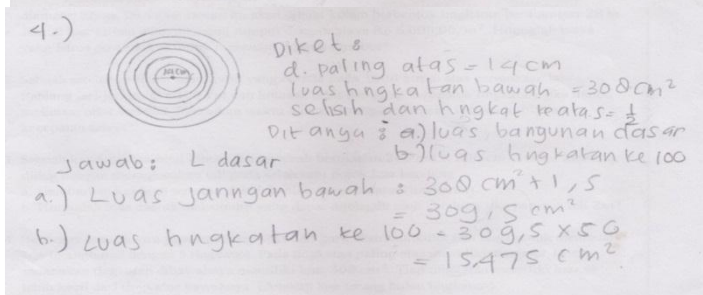 4.)
Diket :
d. paling atas = 14 cm
luas tingkatan bawah = 308 cm²
selisih dan tingkat reatas = 1/2
Ditanya : a) luas bangunan dasar
b) luas tingkatan ke 100
Jawab : L dasar
a.) Luas janngan bawah : 308 cm² + 1,5
= 309,5 cm²
b.) Luas tingkatan ke 100 = 309,5 x 50
= 15,475 cm²